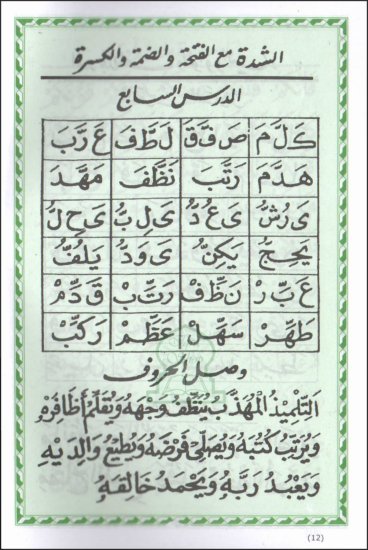 الشدة مع الفتحة والضمة والكسرة
الدرس السابع
كَلَّمَ صَفَّقَ لَطَّفَ عَرَّبَ
هَدَّمَ رَتَّبَ نَظَّفَ مَهَّدَ
يَرُشُّ يَعُدُّ يَلِبُّ يَحِلُّ
يَحِجُّ يَكِنُّ يَوَدُّ يَلُفُّ
عَبِّرْ نَظِّفْ رَتِّبْ قَدِّمْ
طَهِّرْ سَهِّلْ عَظِّمْ رَكِّبْ
وصل الحروف
التِّلْمِيذُ الْمُهَذَّبُ يُنَظِّفُ وَجْهَهُ وَيُقَلِّمُ أَظَافِرَهُ
وَيُرَتِّبُ كُتُبَهُ وَيُصَلِّي فَرْضَهُ وَيُطِيعُ وَالِدَيْهِ
وَيَعْبُدُ رَبَّهُ وَيَحْمَدُ خَالِقَهُ
(12)